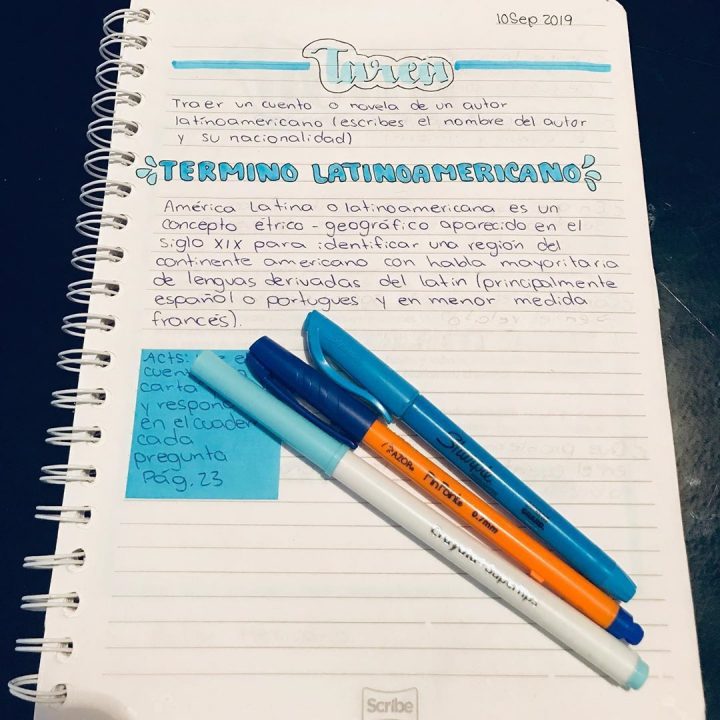 10 Sep 2019
Tarea
Traer un cuento o novela de un autor
latinoamericano (escribes el nombre del autor
y su nacionalidad)
TERMINO LATINOAMERICANO
América Latina o latinoamericana es un
concepto étrico-geográfico aparecido en el
siglo XIX para identificar una región del
continente americano con habla mayoritaria
de lenguas derivadas del latin (principalmente
español o portugues y en menor medida
francés).
Acts:
carta
en el
cada
pregunta
Pág. 23
Sharpie
RAZOR
FinPoint 0.7mm
Scribe